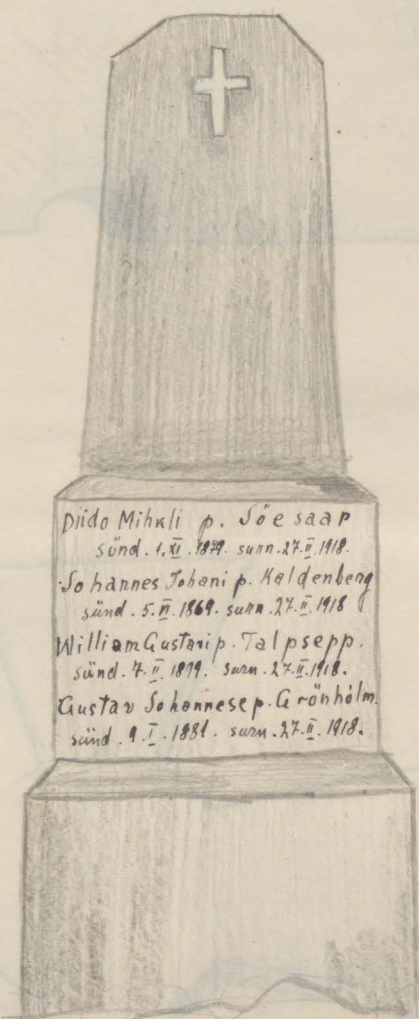 Diido Mihkli p. Sõesaar
sünd. 1.XI.1879. surn. 27.II.1918.
Johannes Johani p. Kaldenberg
sünd. 5.II.1869. surn. 27.II.1918
William Gustavi p. Talpsepp.
sünd. 7.II.1899. surn. 27.II.1918.
Gustav Johannese p. Grönholm.
sünd. 9.I.1881. surn. 27.II.1918.